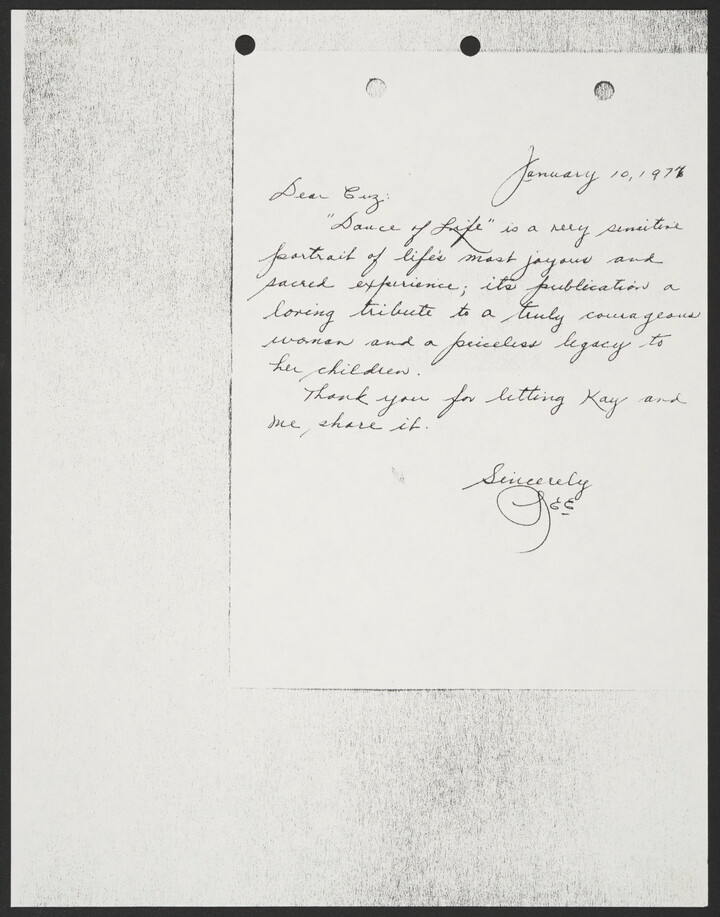 January 10, 197
Dear Cuz:
"Dance of Life" is a very sensitive
portrait of life's most joyous and
sacred experience; its publication a
loving tribute to a truly courageous
woman and a priceless legacy to
her children.
Thank you for letting Kay and
me, share it.
Sincerely